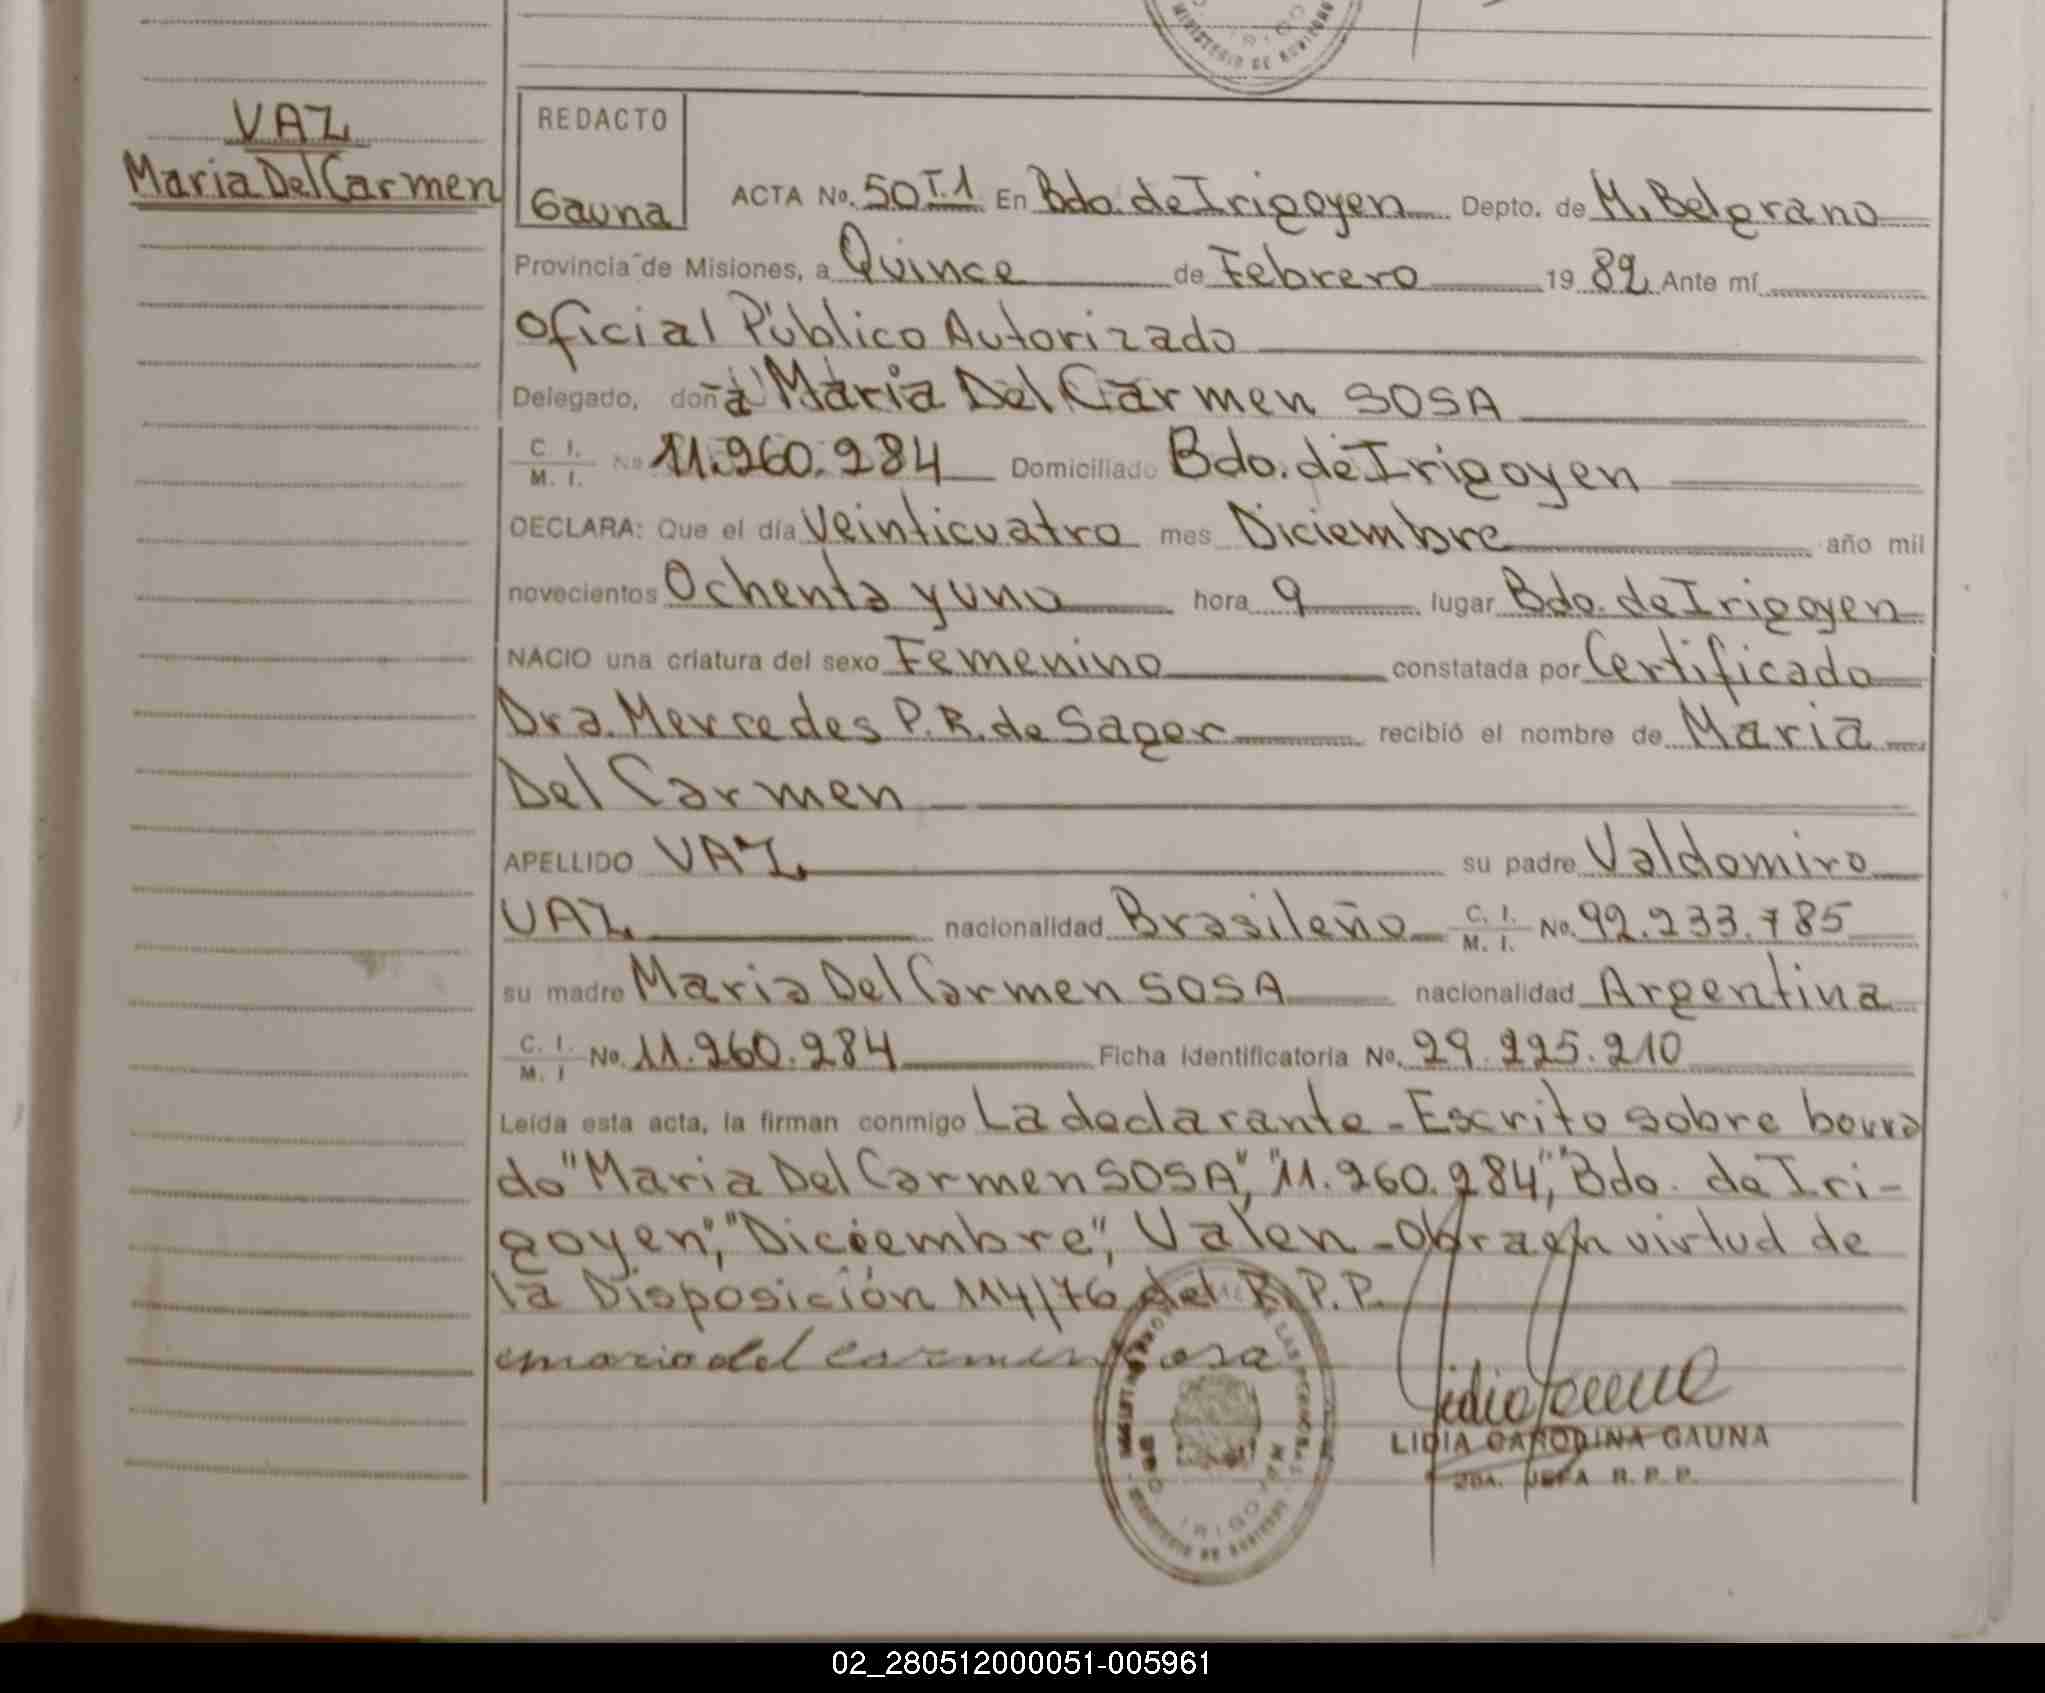 MINISTERIO DE
VAZ
Maria Del Carmen
REDACTO
Gauna
ACTA No. 50 T.1 En Bdo. de Irigoyen Depto. de M. Belgrano
Provincia de Misiones, a Quince de Febrero 19 82 Ante mí
Oficial Público Autorizado
Delegado, doña Maria Del Carmen SOSA
C. I. / M. I. No 11.260.284 Domiciliado Bdo. de Irigoyen
DECLARA: Que el día Veinticuatro mes Diciembre año mil
novecientos Ochenta y uno hora 9 lugar Bdo. de Irigoyen
NACIO una criatura del sexo Femenino constatada por Certificado
Dra. Mercedes P.R. de Sager recibió el nombre de Maria
Del Carmen
APELLIDO VAZ su padre Valdomiro
VAZ nacionalidad Brasileño C. I. / M. I. No. 92.233.785
su madre Maria Del Carmen SOSA nacionalidad Argentina
C. I. / M. I No. 11.260.284 Ficha identificatoria No. 29.225.210
Leída esta acta, la firman conmigo La declarante - Escrito sobre borra
do "Maria Del Carmen SOSA", "11.260.284", "Bdo. de Iri-
goyen", "Diciembre", Valen - Obra en virtud de
la Disposición 114/76 del R.P.P.
maria del carmen sosa
IRIGOYEN
MINISTERIO DE
LIDIA CAROLINA GAUNA
2DA. JEFA R. P. P.
02_280512000051-005961